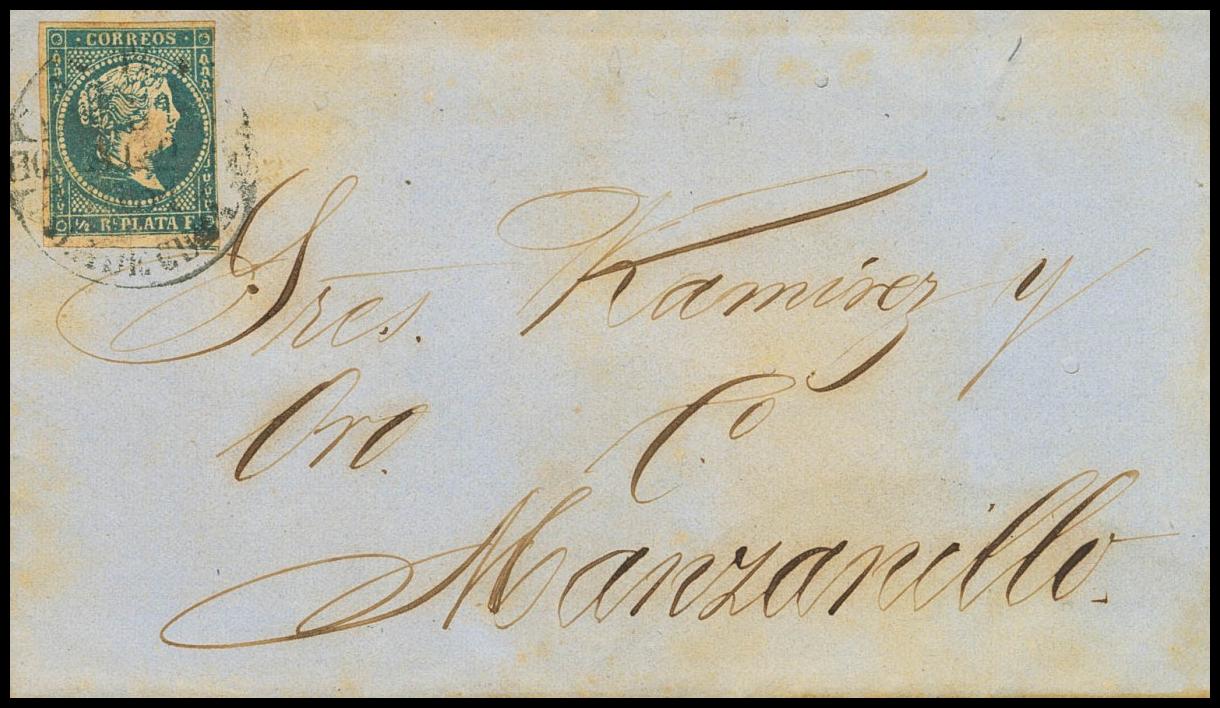 CORREOS
½ Rl. PLATA F.
Sres. Ramirez y
Oro Co.
Manzanillo.